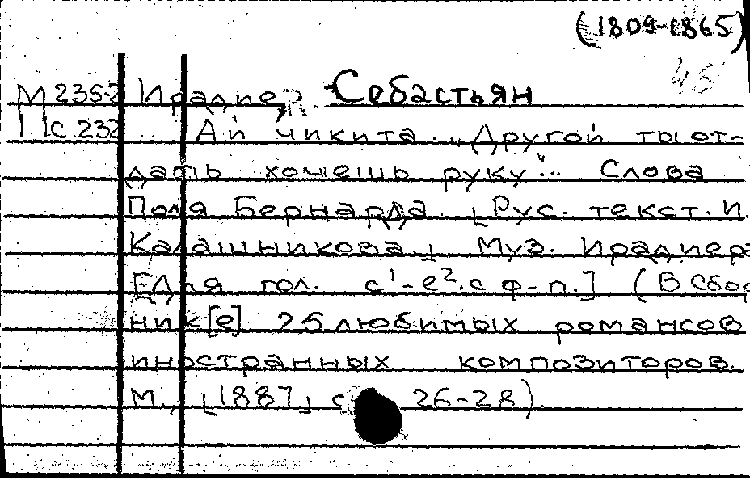 (1809-1865)
45
М 235-2 Ирадиер, Себастьян
Пс 232 Ай чикита. "Другой ты от-
дать хочешь руку".. Слова
Поля Бернарда. [Рус. текст. И
Калашникова.] Муз. Ирадиер
[Для гол. c¹-e². с ф-п.] (В сбор
ник[е] 25 любимых романсов
иностранных композиторов.
М., [1887] с 26-28)